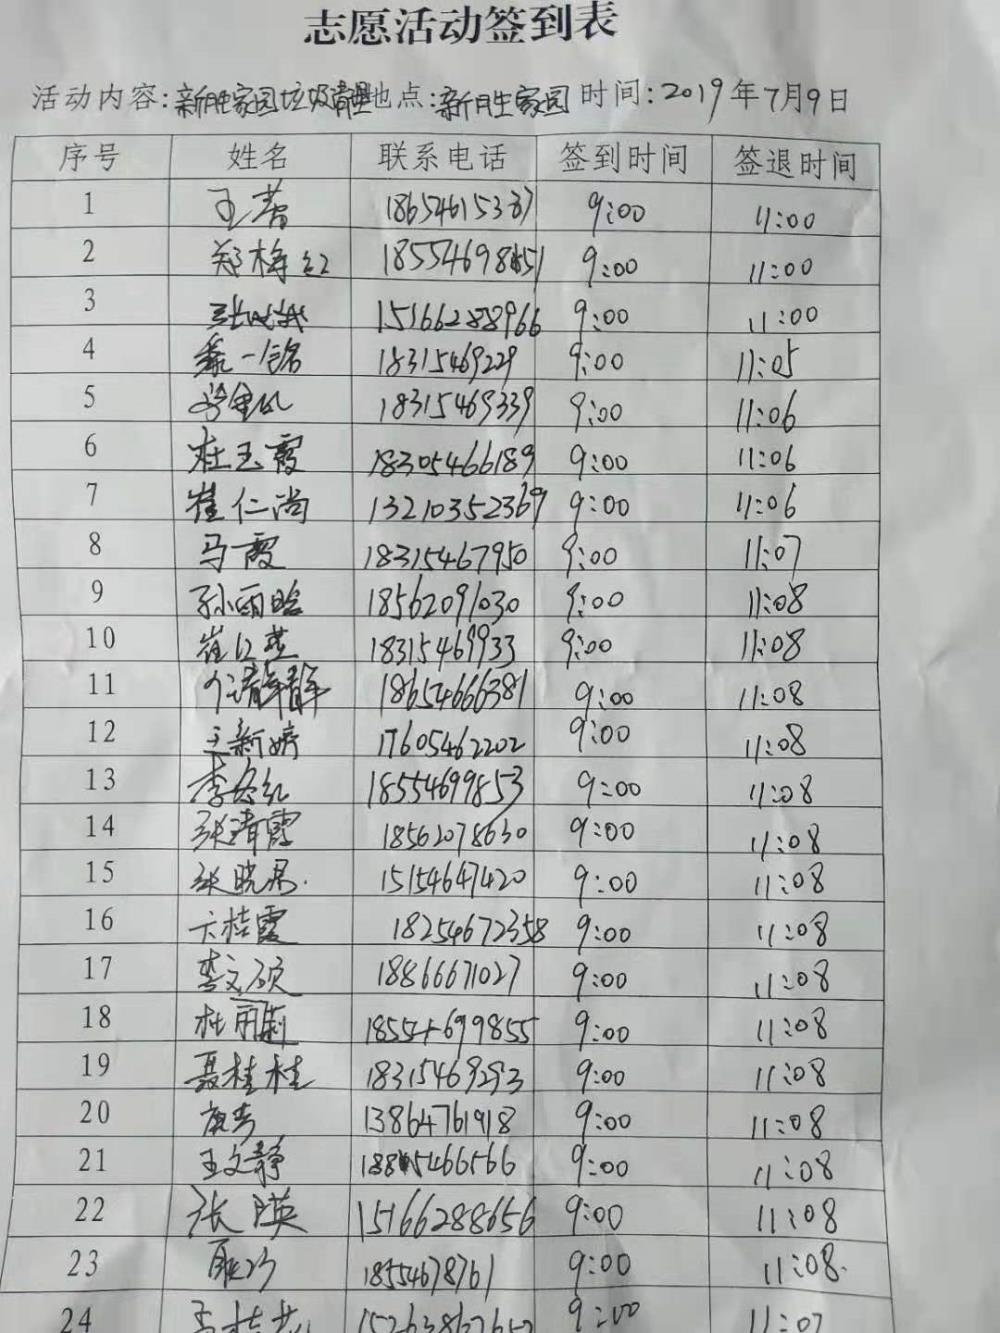 志愿活动签到表
活动内容:新胜家园垃圾清理地点:新胜家园 时间:2019年7月9日
序号 姓名 联系电话 签到时间 签退时间
1 王蓉 18654615387 9:00 11:00
2 郑梅红 9:00 11:00
3 15166288966 9:00 11:00
4 18315469229 9:00 11:05
5 18315469339 9:00 11:06
6 杜玉霞 18305466189 9:00 11:06
7 崔仁尚 13210352369 9:00 11:06
8 马霞 18315467950 9:00 11:07
9 孙雨晗 18562091030 9:00 11:08
10 崔红燕 18315469933 9:00 11:08
11 静静 18654666381 9:00 11:08
12 王新婷 17605462202 9:00 11:08
13 李红 18554699853 9:00 11:08
14 张清霞 18562078630 9:00 11:08
15 张晓君. 15154647420 9:00 11:08
16 桂霞 18254672358 9:00 11:08
17 李文硕 18866671027 9:00 11:08
18 杜 18554699855 9:00 11:08
19 聂桂桂 18315469293 9:00 11:08
20 13864761918 9:00 11:08
21 王文静 9:00 11:08
22 张瑛 15166288656 9:00 11:08
23 18554678761 9:00 11:08.
24 9:00 11:07